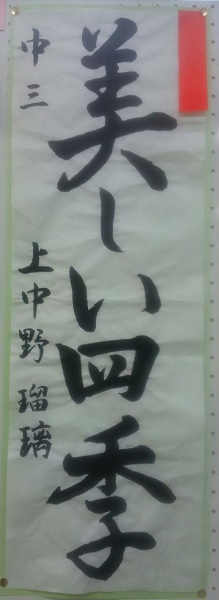 美しい四季
中三 上中野瑠璃